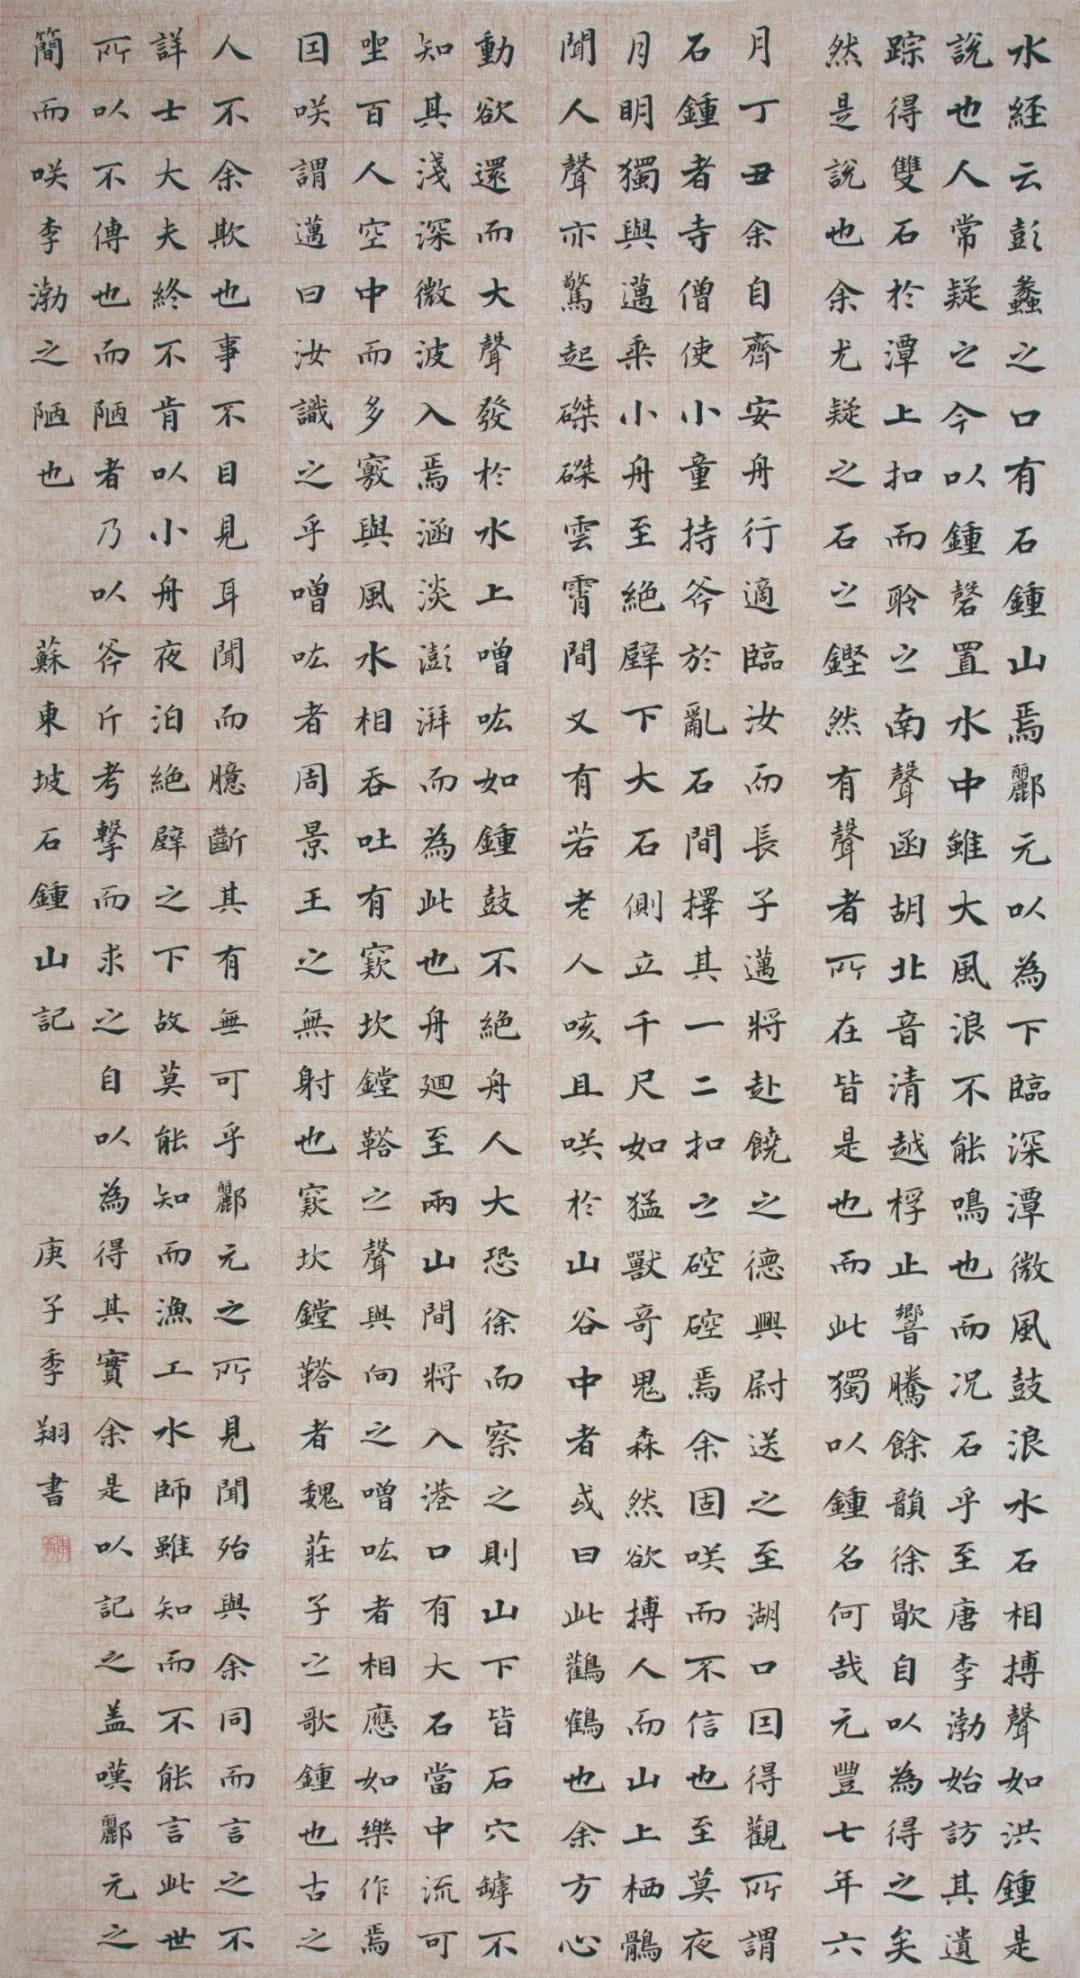 水経云彭蠡之口有石鍾山焉酈元以為下臨深潭微風鼓浪水石相搏聲如洪鍾是
說也人常疑之今以鍾磬置水中雖大風浪不能鳴也而況石乎至唐李渤始訪其遺
踪得雙石於潭上扣而聆之南聲函胡北音清越桴止響騰餘韻徐歇自以為得之矣
然是說也余尤疑之石之鏗然有聲者所在皆是也而此獨以鍾名何哉元豐七年六
月丁丑余自齊安舟行適臨汝而長子邁將赴饒之德興尉送之至湖口因得觀所謂
石鍾者寺僧使小童持斧於亂石間擇其一二扣之硿硿焉余固咲而不信也至莫夜
月明獨與邁乘小舟至絕壁下大石側立千尺如猛獸奇鬼森然欲搏人而山上栖鶻
聞人聲亦驚起磔磔雲霄間又有若老人咳且咲於山谷中者或曰此鸛鶴也余方心
動欲還而大聲發於水上噌吰如鍾鼓不絕舟人大恐徐而察之則山下皆石穴罅不
知其淺深微波入焉涵淡澎湃而為此也舟廻至兩山間將入港口有大石當中流可
坐百人空中而多竅與風水相吞吐有窾坎鏜鞳之聲與向之噌吰者相應如樂作焉
因咲謂邁曰汝識之乎噌吰者周景王之無射也窾坎鏜鞳者魏莊子之歌鍾也古之
人不余欺也事不目見耳聞而臆斷其有無可乎酈元之所見聞殆與余同而言之不
詳士大夫終不肯以小舟夜泊絕壁之下故莫能知而漁工水師雖知而不能言此世
所以不傳也而陋者乃以斧斤考擊而求之自以為得其實余是以記之盖嘆酈元之
簡而咲李渤之陋也 蘇東坡石鍾山記 庚子季翔書